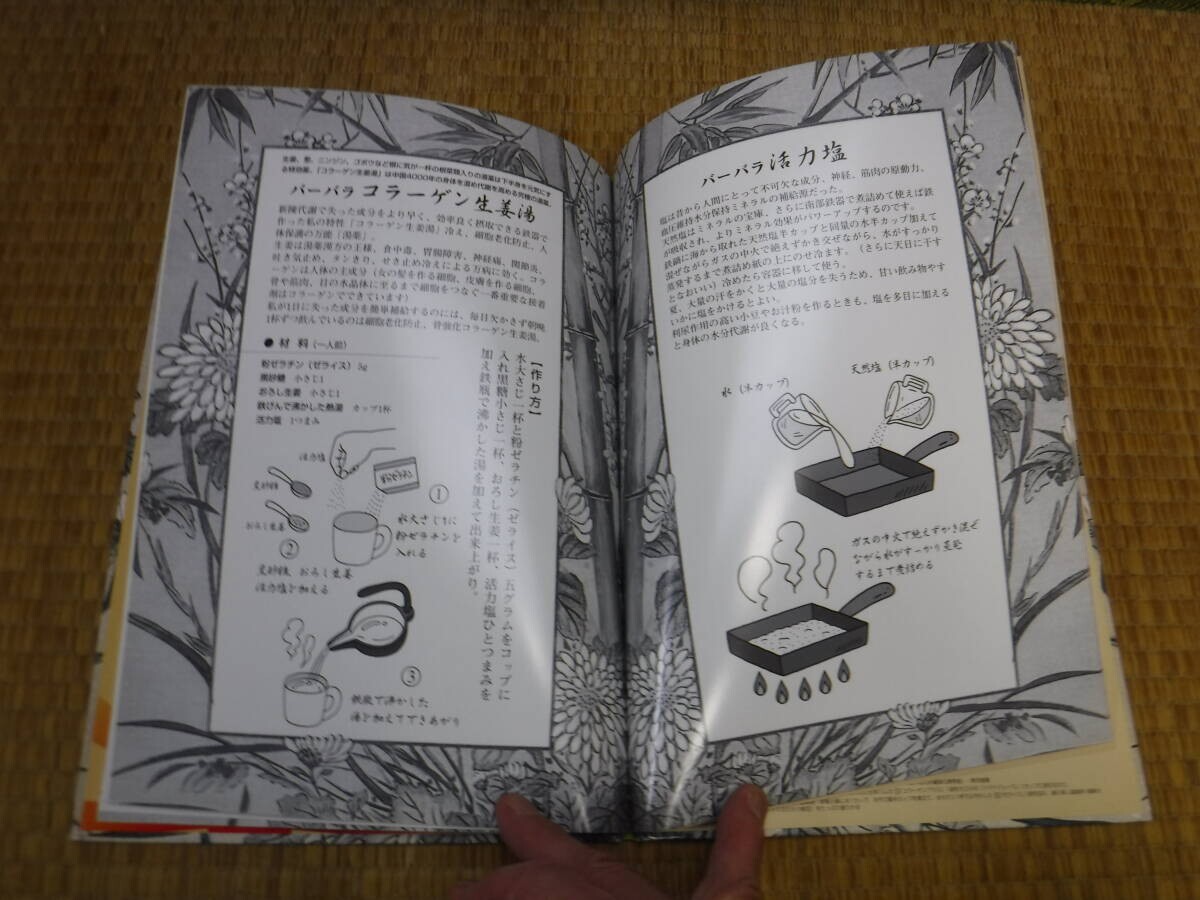 生姜、葱、ニンジン、ゴボウなど根に気が一杯の根菜類入りの湯薬は下半身を元気にす
る特効薬。「コラーゲン生姜湯」は中国4000年の身体を温め代謝を高める究極の湯薬。
バーバラ コラーゲン生姜湯
新陳代謝で失った成分をより早く、効率良く摂取できる鉄器で
作った私の特性「コラーゲン生姜湯」冷え、細胞老化防止、人
体保護の万能「湯薬」。
生姜は湯薬漢方の王様、食中毒、胃腸障害、神経痛、関節炎、
吐き気止め、タンきり、せき止め冷えによる万病に効く。コラ
ーゲンは人体の主成分（女の髪を作る細胞、皮膚を作る細胞、
骨や筋肉、目の水晶体に至るまで細胞をつなぐ一番重要な接着
剤はコラーゲンでできています）
私が1日に失った成分を簡単補給するのには、毎日欠かさず朝晩
1杯ずつ飲んでいるのは細胞老化防止、骨強化コラーゲン生姜湯。
●材料（一人前）
粉ゼラチン（ゼライス）5g
黒砂糖 小さじ1
おろし生姜 小さじ1
鉄びんで沸かした熱湯 カップ1杯
活力塩 1つまみ
【作り方】
水大さじ一杯と粉ゼラチン（ゼライス）五グラムをコップに
入れ黒糖小さじ一杯、おろし生姜一杯、活力塩ひとつまみを
加え鉄瓶で沸かした湯を加えて出来上がり。
活力塩
粉ゼラチン
黒砂糖
おろし生姜
①
水大さじ1に
粉ゼラチンを
入れる
②
黒砂糖、おろし生姜
活力塩を加える
③
鉄瓶で沸かした
湯を加えてできあがり
バーバラ活力塩
塩は昔から人間にとって不可欠な成分、神経、筋肉の原動力、
血圧維持水分保持ミネラルの補給源だった。
天然塩はミネラルの宝庫、さらに南部鉄器で煮詰めて使えば鉄
が吸収され、よりミネラル効果がパワーアップするのです。
鉄鍋に海から取れた天然塩半カップと同量の水半カップ加えて
混ぜながらガスの中火で絶えずかき交ぜながら、水がすっかり
蒸発するまで煮詰め紙の上にのせ冷ます。（さらに天日に干す
となおいい）冷めたら容器に移して使う。
夏、大量の汗をかくと大量の塩分を失うため、甘い飲み物やす
いかに塩をかけるとよい。
利尿作用の高い小豆やお汁粉を作るときも、塩を多目に加える
と身体の水分代謝が良くなる。
水（半カップ）
天然塩（半カップ）
ガスの中火で絶えずかき混ぜ
ながら水がすっかり蒸発
するまで煮詰める